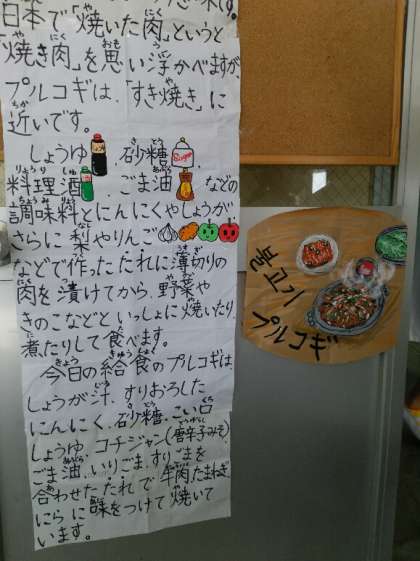 日本で「焼いた肉」というと
「焼き肉」を思い浮かべますが、
プルコギは、「すき焼き」に
近いです。
しょうゆ 砂糖、
料理酒 ごま油 などの
調味料とにんにくやしょうが
さらに 梨やりんご
などで作ったたれに薄切りの
肉を漬けてから、野菜や
きのこなどといっしょに焼いたり、
煮たりして食べます。
今日の給食のプルコギは、
しょうが汁、すりおろした
にんにく、砂糖、こい口
しょうゆ、コチジャン(唐辛子みそ)、
ごま油、いりごま、すりごまを
合わせたたれで牛肉、たまねぎ、
にらに味をつけて焼いて
います。
불고기
プルコギ